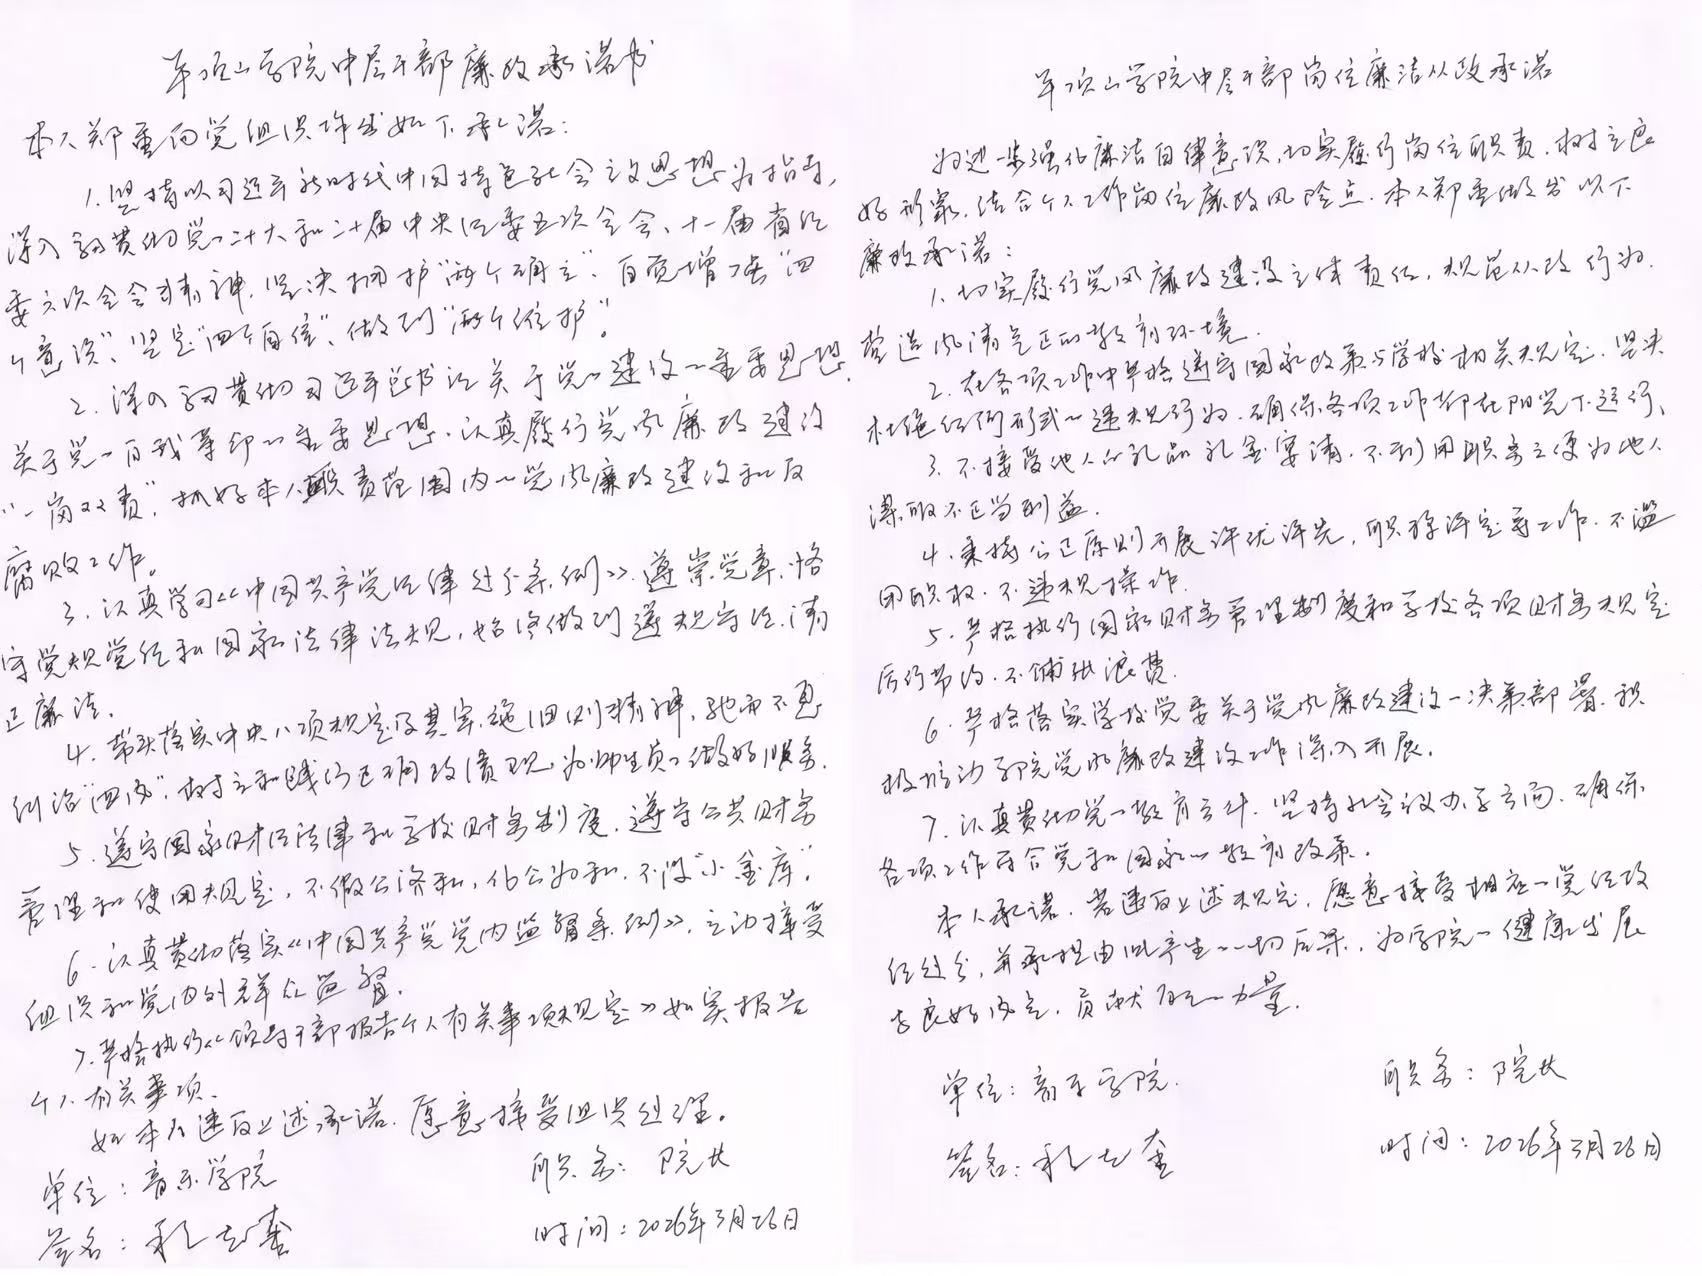 平顶山学院中层干部廉政承诺书
本人郑重向党组织作出如下承诺：
1.坚持以习近平新时代中国特色社会主义思想为指导，
深入学习贯彻党的二十大和二十届中央纪委五次全会、十一届省纪
委六次全会精神，坚决拥护“两个确立”、自觉增强“四
个意识”、坚定“四个自信”、做到“两个维护”。
2.深入学习贯彻习近平总书记关于党的建设的重要思想、
关于党的自我革命的重要思想，认真履行党风廉政建设
“一岗双责”，抓好本人职责范围内的党风廉政建设和反
腐败工作。
3.认真学习《中国共产党纪律处分条例》，遵崇党章，恪
守党规党纪和国家法律法规，始终做到遵规守纪、清
正廉洁。
4.带头落实中央八项规定及其实施细则精神，驰而不息
纠治“四风”，树立和践行正确政绩观，为师生员工做好服务。
5.遵守国家财经法律和学校财务制度，遵守公共财务
管理和使用规定，不假公济私，化公为私，不设“小金库”。
6.认真贯彻落实《中国共产党党内监督条例》，主动接受
组织和党内外群众监督。
7.严格执行《领导干部报告个人有关事项规定》如实报告
个人有关事项。
如本人违反上述承诺，愿意接受组织处理。
单位：音乐学院
职务：院长
签名：
时间：2026年3月26日
平顶山学院中层干部岗位廉洁从政承诺
为进一步强化廉洁自律意识，切实履行岗位职责，树立良
好形象，结合个人工作岗位廉政风险点，本人郑重做出以下
廉政承诺：
1.切实履行党风廉政建设主体责任，规范从政行为，
营造风清气正的教育环境。
2.在各项工作中严格遵守国家政策与学校相关规定，坚决
杜绝任何形式的违规行为，确保各项工作都在阳光下运行。
3.不接受他人的礼品礼金宴请，不利用职务之便为他人
谋取不正当利益。
4.秉持公正原则开展评优评先，职称评定等工作，不滥
用职权，不违规操作。
5.严格执行国家财务管理制度和学校各项财务规定
厉行节约，不铺张浪费。
6.严格落实学校党委关于党风廉政建设的决策部署，积
极推动学院党风廉政建设工作深入开展。
7.认真贯彻党的教育方针，坚持社会主义办学方向，确保
各项工作符合党和国家的教育政策。
本人承诺，若违反上述规定，愿意接受相应的党纪政
纪处分，并承担由此产生的一切后果，为学院的健康发展
与良好风气，贡献自己的力量。
单位：音乐学院
职务：院长
签名：
时间：2026年3月26日